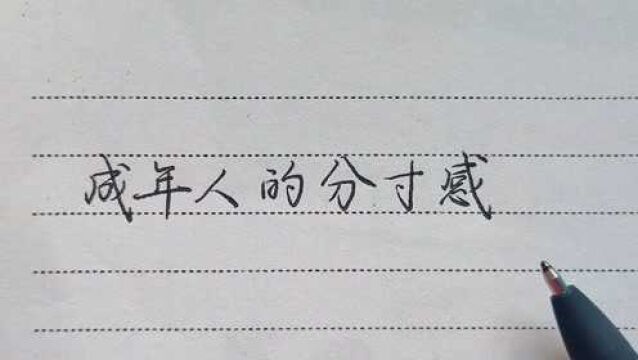 成年人的分寸感